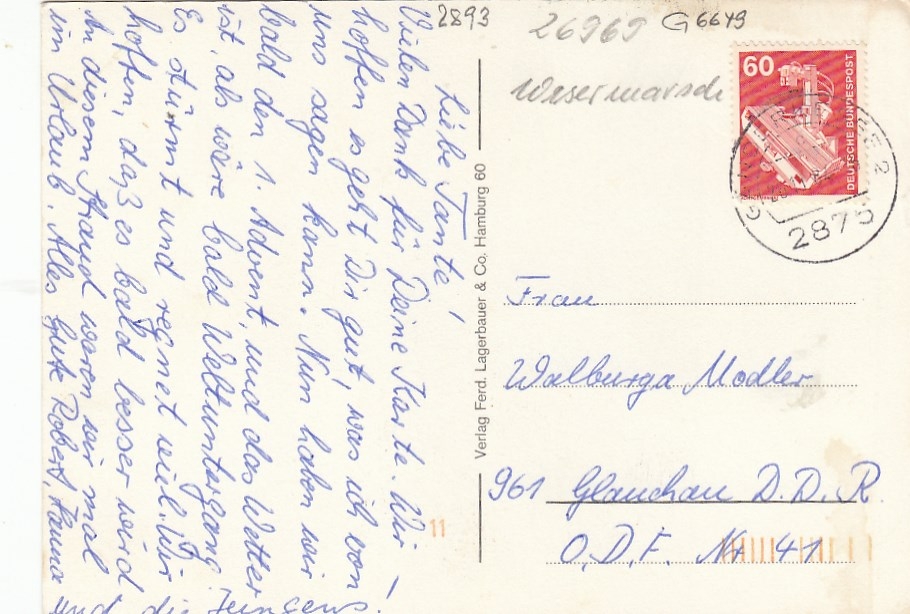 2893
Liebe Tante!
Vielen Dank für Deine Karte. Wir
hoffen es geht Dir gut, was ich von
uns sagen kann. Nun haben wir
bald den 1. Advent, und das Wetter
ist, als wäre bald Weltuntergang
Es stürmt und regnet viel. Wir
hoffen, daß es bald besser wird
An diesem Strand waren wir mal
im Urlaub. Alles Gute Robert, Hanna
und die Jungens!
Verlag Ferd. Lagerbauer & Co. Hamburg 60
11
26969 G6649
Wesermarsch
60
DEUTSCHE BUNDESPOST
2
2875
Frau
Walburga Modler
961 Glauchau D.D.R.
O.D.F. Nr 41